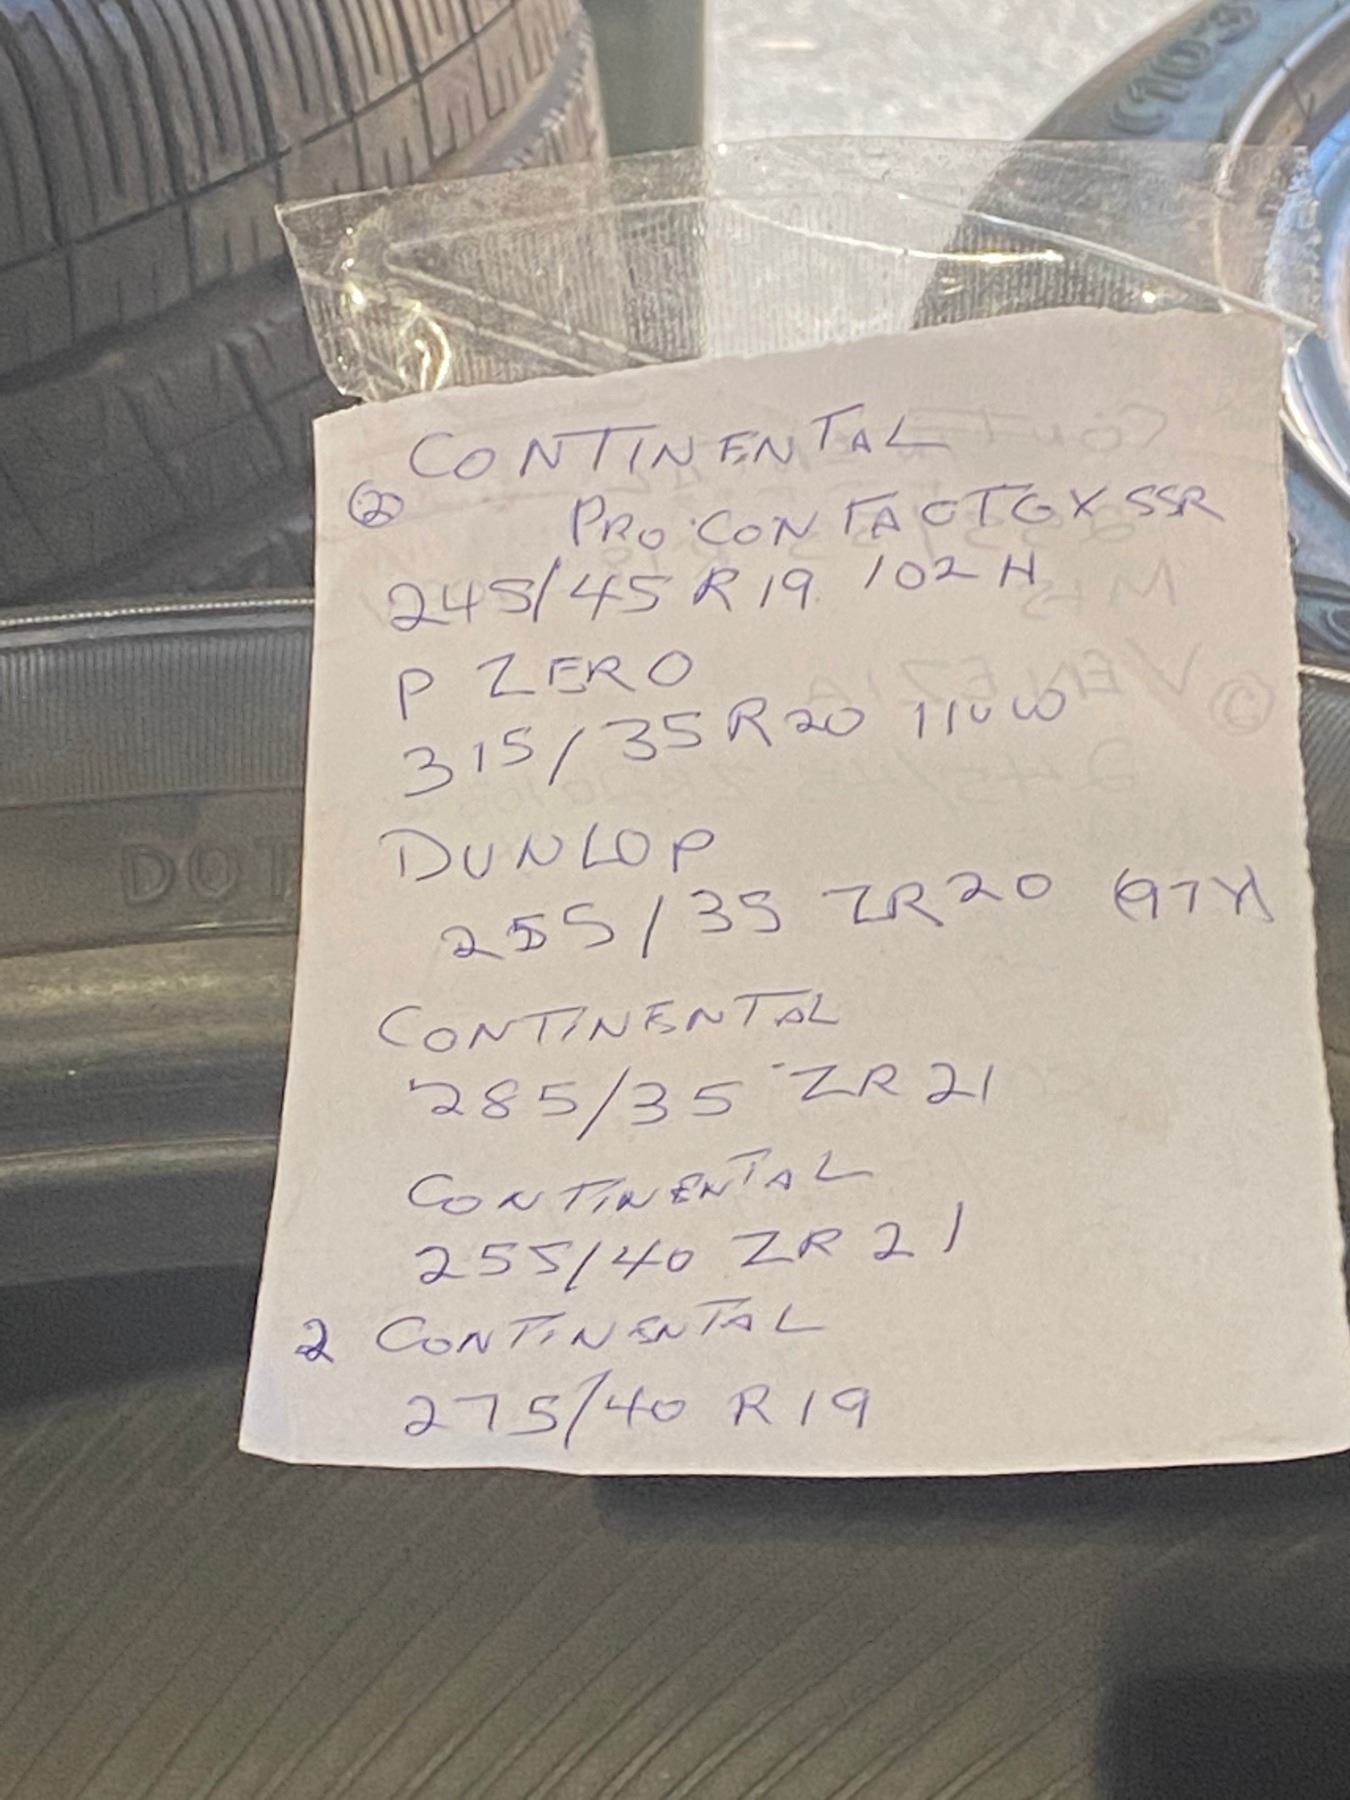 CONTINENTAL
② PROCONTACT GX SSR
245/45 R 19 102 H
P ZERO
315/35 R 20 110 W
DUNLOP
255/35 ZR 20 (97Y)
CONTINENTAL
285/35 ZR 21
CONTINENTAL
255/40 ZR 21
2 CONTINENTAL
275/40 R 19
DOT